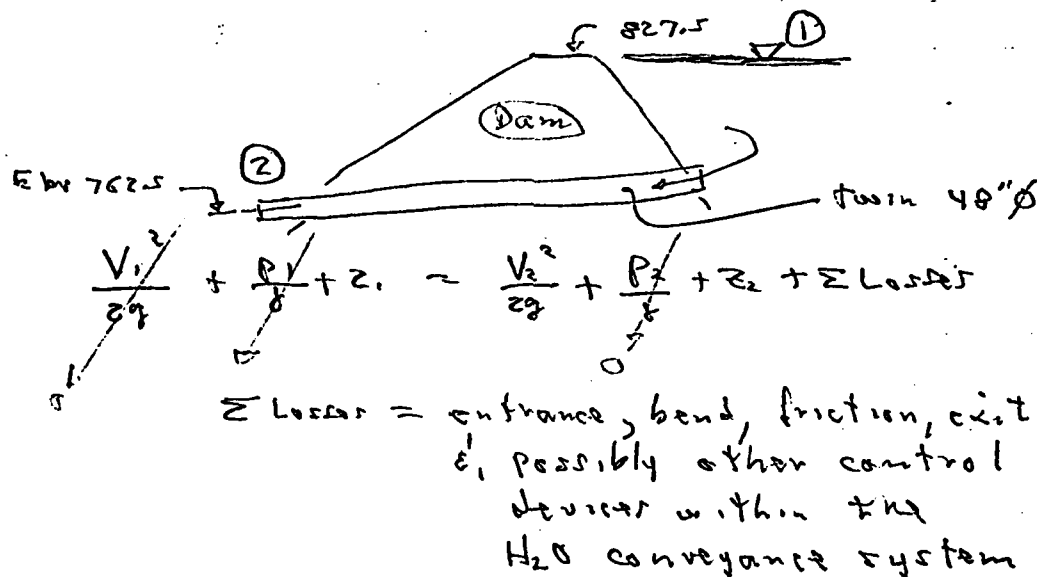 827.5 ①
Dam
②
Elev 762.5
twin 48"Ø
V₁²/2g + P₁/γ + Z₁ = V₂²/2g + P₂/γ + Z₂ + Σ Losses
0 0 0
Σ Losses = entrance, bend, friction, exit
&, possibly other control
devices within the
H₂O conveyance system